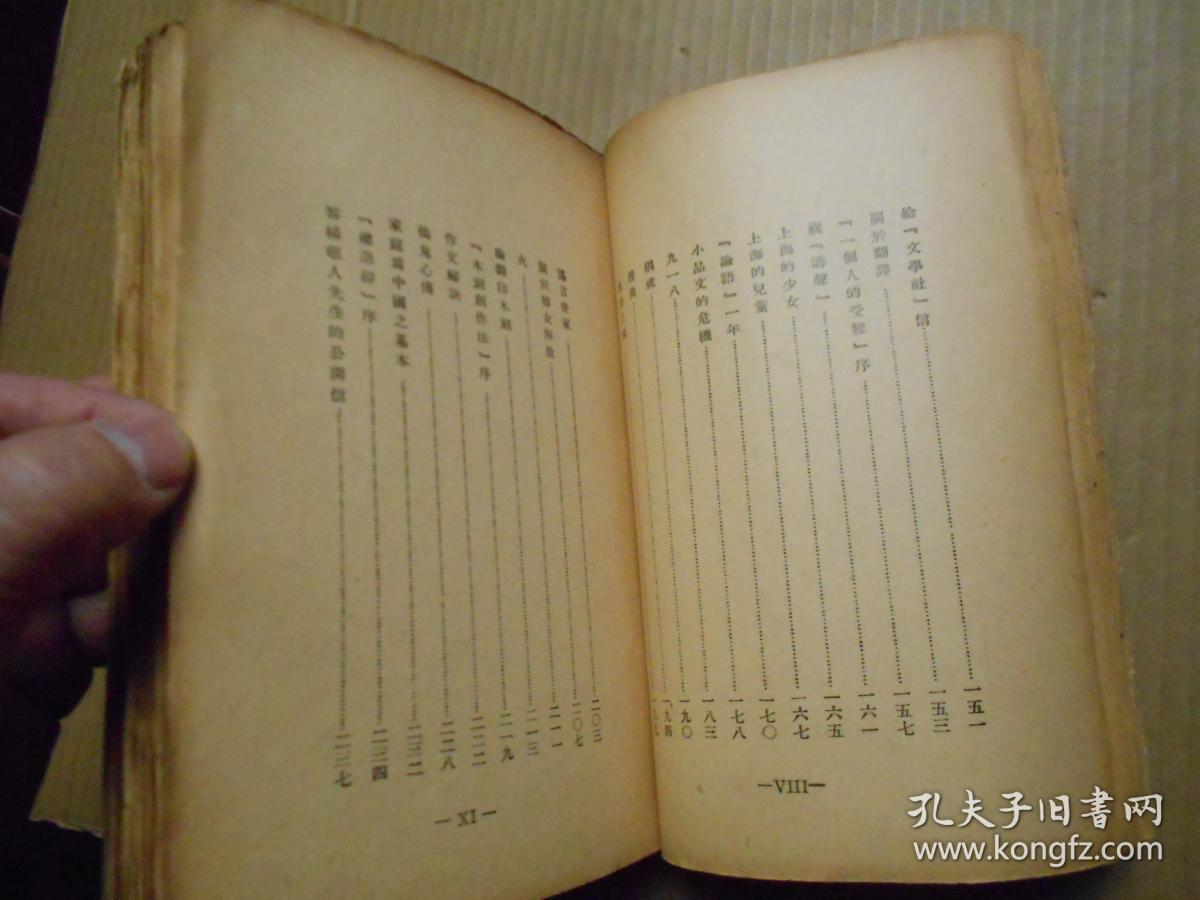 給『文學社』信……一五一
關於翻譯……一五三
『一個人的受難』序……一五七
祝『濤聲』……一六一
上海的少女……一六五
上海的兒童……一六七
『論語』一年……一七〇
小品文的危機……一七八
九一八……一八三
偶成……一九〇
漫與……一九四
—VIII—
謠言世家……二〇三
關於婦女解放……二〇七
火……二一一
論翻印木刻……二一三
『木刻創作法』序……二一九
作文秘訣……二二二
搗鬼心傳……二二八
家庭爲中國之基本……二三二
『總退却』序……二三四
答楊邨人先生的公開信……二三七
—XI—
孔夫子旧书网
www.kongfz.com